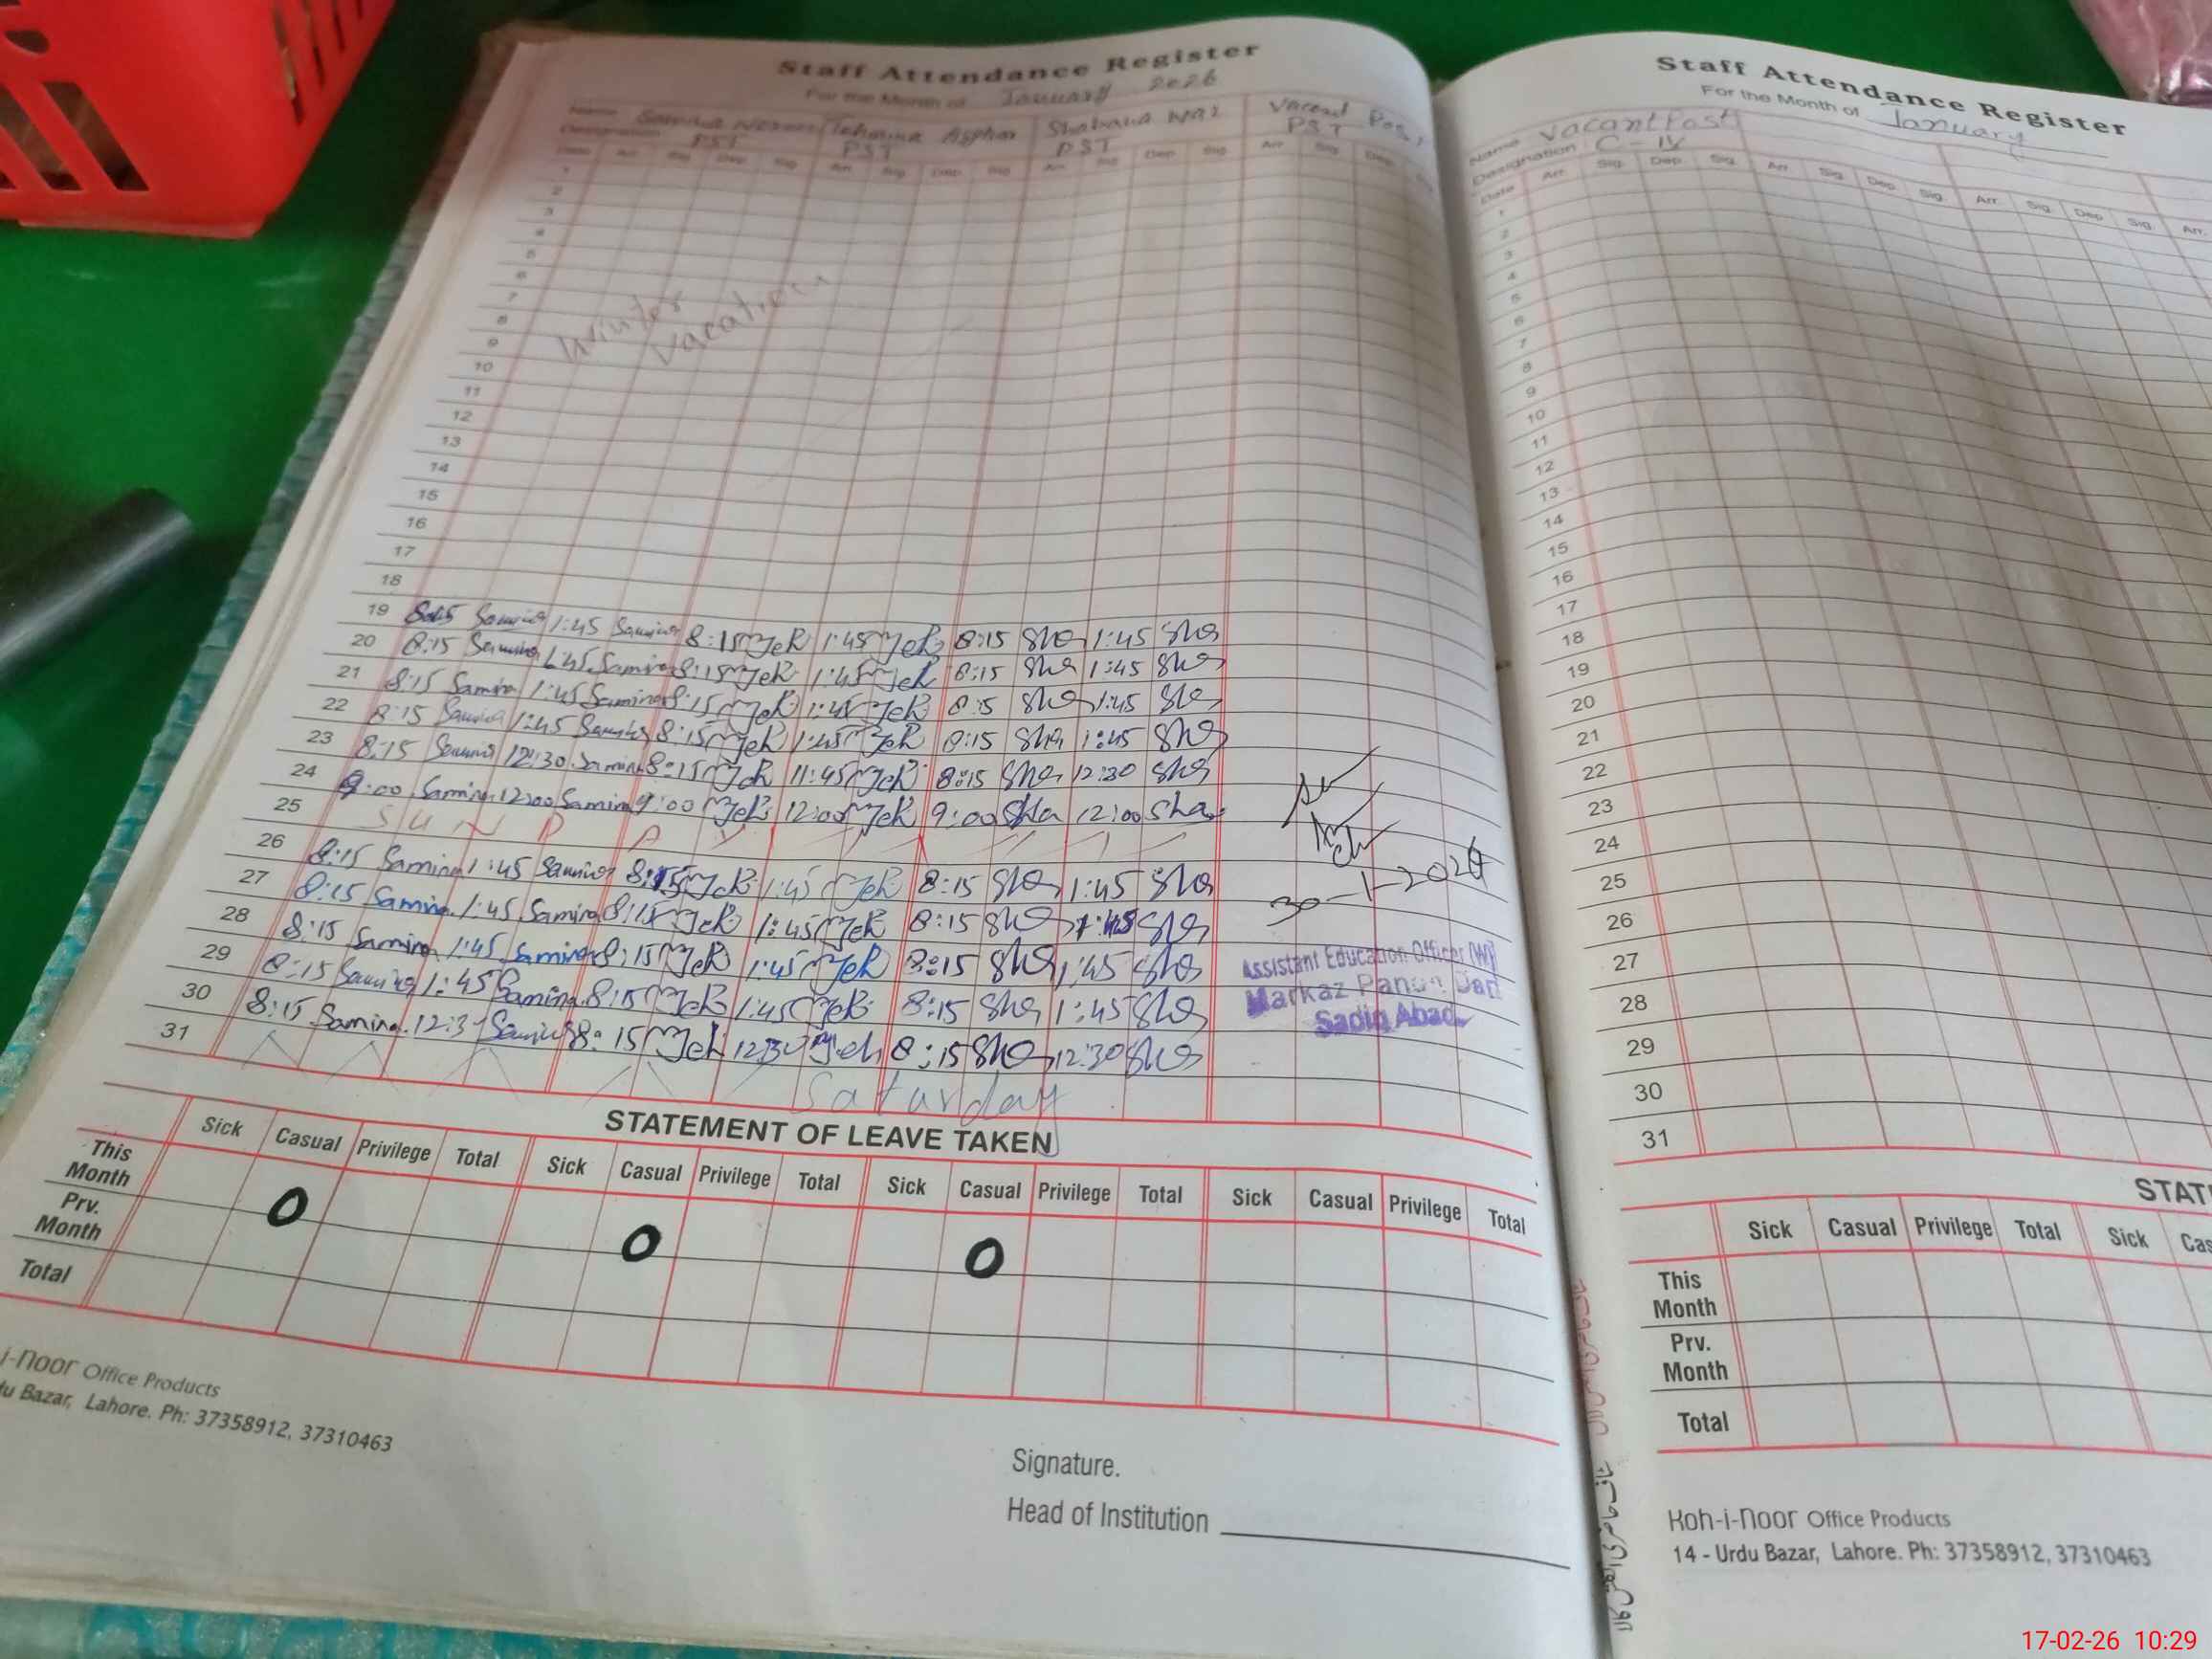 Staff Attendance Register
For the Month of January 2026
Name Samina Tehmina Asghar Shabana Naz Vacant Post
Designation PST PST PST PST
Date Arr Sig Dep Sig Arr Sig Dep Sig Arr Sig Dep Sig Arr Sig Dep Sig
1
2
3
4
5
6
7
8
9
10
11
12
13
14
15
16
17
18
Winter
Vacation
19 Samina 1:45 Samina 8:15 1:45 8:15 Sha 1:45 Sha
20 8:15 Samina 1:45 Samina 8:15 1:45 8:15 Sha 1:45 Sha
21 8:15 Samina 1:45 Samina 8:15 1:45 8:15 Sha 1:45 Sha
22 8:15 Samina 1:45 Samina 8:15 1:45 8:15 Sha 1:45 Sha
23 8:15 Samina 12:30 Samina 8:15 11:45 8:15 Sha 12:30 Sha
24 9:00 Samina 12:00 Samina 9:00 12:00 9:00 Sha 12:00 Sha
25 SUNDAY
26 8:15 Samina 1:45 Samina 8:15 1:45 8:15 Sha 1:45 Sha
27 8:15 Samina 1:45 Samina 8:15 1:45 8:15 Sha 1:45 Sha
28 8:15 Samina 1:45 Samina 8:15 1:45 8:15 Sha 1:45 Sha
29 8:15 Samina 1:45 Samina 8:15 1:45 8:15 Sha 1:45 Sha
30 8:15 Samina 12:3 Samina 8:15 12:30 8:15 Sha 12:30 Sha
31 Saturday
Assistant Education Officer (W)
Markaz
Sadiq Abad
STATEMENT OF LEAVE TAKEN
Sick Casual Privilege Total Sick Casual Privilege Total Sick Casual Privilege Total Sick Casual Privilege Total
This Month 0 0 0
Prv. Month
Total
i-noor Office Products
du Bazar, Lahore. Ph: 37358912, 37310463
Signature.
Head of Institution
Staff Attendance Register
For the Month of January
Name Vacant Post
Designation C-IV
Date Arr. Sig. Dep. Sig. Arr. Sig. Dep. Sig. Arr. Sig. Dep. Sig. Arr.
1
2
3
4
5
6
7
8
9
10
11
12
13
14
15
16
17
18
19
20
21
22
23
24
25
26
27
28
29
30
31
STAT
Sick Casual Privilege Total Sick Cas
This Month
Prv. Month
Total
Koh-i-noor Office Products
14 - Urdu Bazar, Lahore. Ph: 37358912, 37310463
17-02-26 10:29